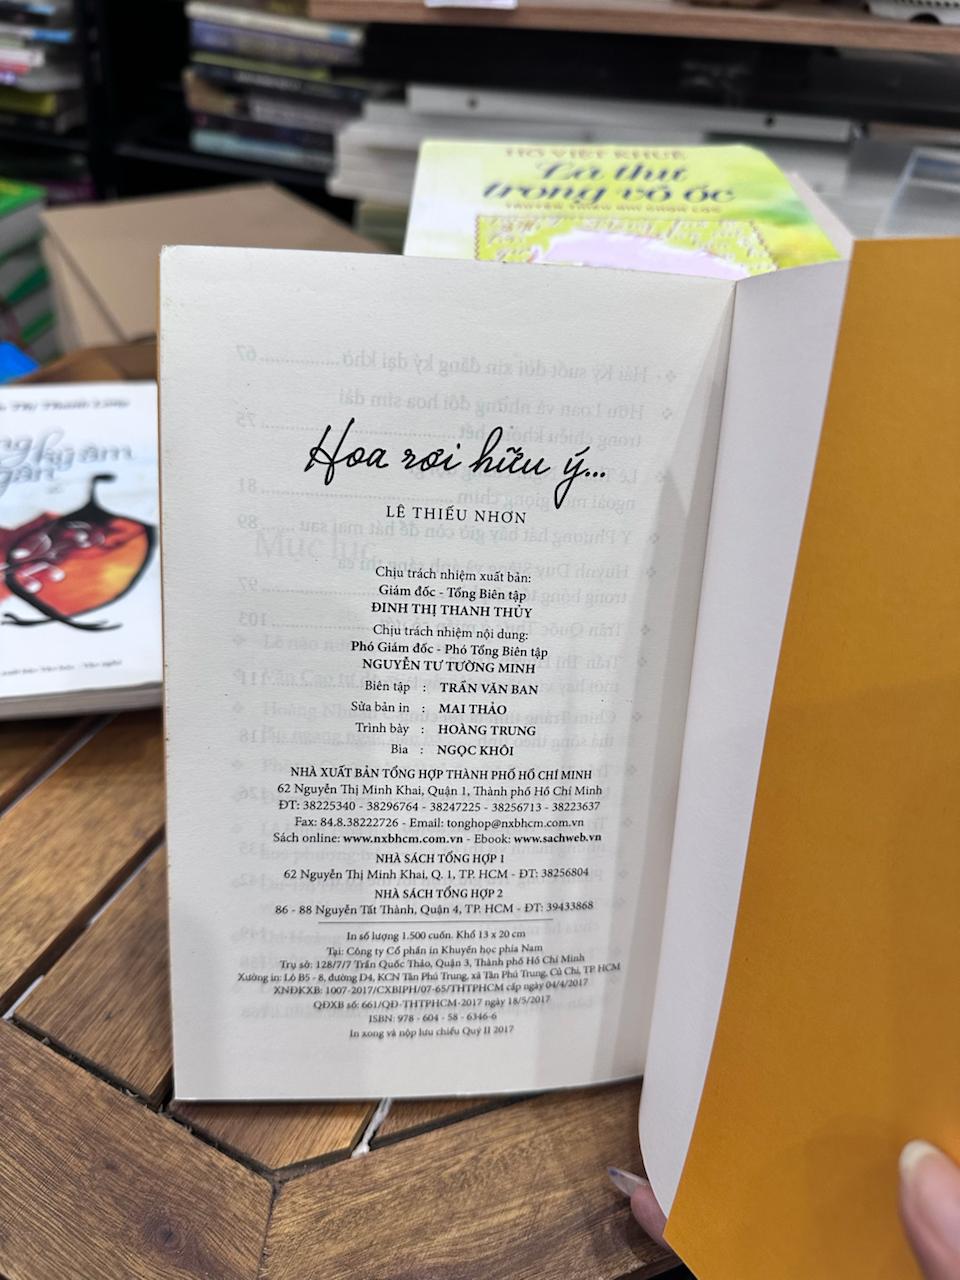 HỒ VIỆT KHUÊ
Lá thư
trong vỏ ốc
Hoa rơi hữu ý...
LÊ THIẾU NHƠN
Chịu trách nhiệm xuất bản:
Giám đốc - Tổng Biên tập
ĐINH THỊ THANH THỦY
Chịu trách nhiệm nội dung:
Phó Giám đốc - Phó Tổng Biên tập
NGUYỄN TƯ TƯỜNG MINH
Biên tập : TRẦN VĂN BAN
Sửa bản in : MAI THẢO
Trình bày : HOÀNG TRUNG
Bìa : NGỌC KHÔI
NHÀ XUẤT BẢN TỔNG HỢP THÀNH PHỐ HỒ CHÍ MINH
62 Nguyễn Thị Minh Khai, Quận 1, Thành phố Hồ Chí Minh
ĐT: 38225340 - 38296764 - 38247225 - 38256713 - 38223637
Fax: 84.8.38222726 - Email: tonghop@nxbhcm.com.vn
Sách online: www.nxbhcm.com.vn - Ebook: www.sachweb.vn
NHÀ SÁCH TỔNG HỢP 1
62 Nguyễn Thị Minh Khai, Q. 1, TP. HCM - ĐT: 38256804
NHÀ SÁCH TỔNG HỢP 2
86 - 88 Nguyễn Tất Thành, Quận 4, TP. HCM - ĐT: 39433868
In số lượng 1.500 cuốn. Khổ 13 x 20 cm
Tại: Công ty Cổ phần in Khuyến học phía Nam
Trụ sở: 128/7/7 Trần Quốc Thảo, Quận 3, Thành phố Hồ Chí Minh
Xưởng in: Lô B5 - 8, đường D4, KCN Tân Phú Trung, xã Tân Phú Trung, Củ Chi, TP HCM
XNĐKXB: 1007-2017/CXBIPH/07-65/THTPHCM cấp ngày 04/4/2017
QĐXB số: 661/QĐ-THTPHCM-2017 ngày 18/5/2017
ISBN: 978 - 604 - 58 - 6346-6
In xong và nộp lưu chiểu Quý II 2017